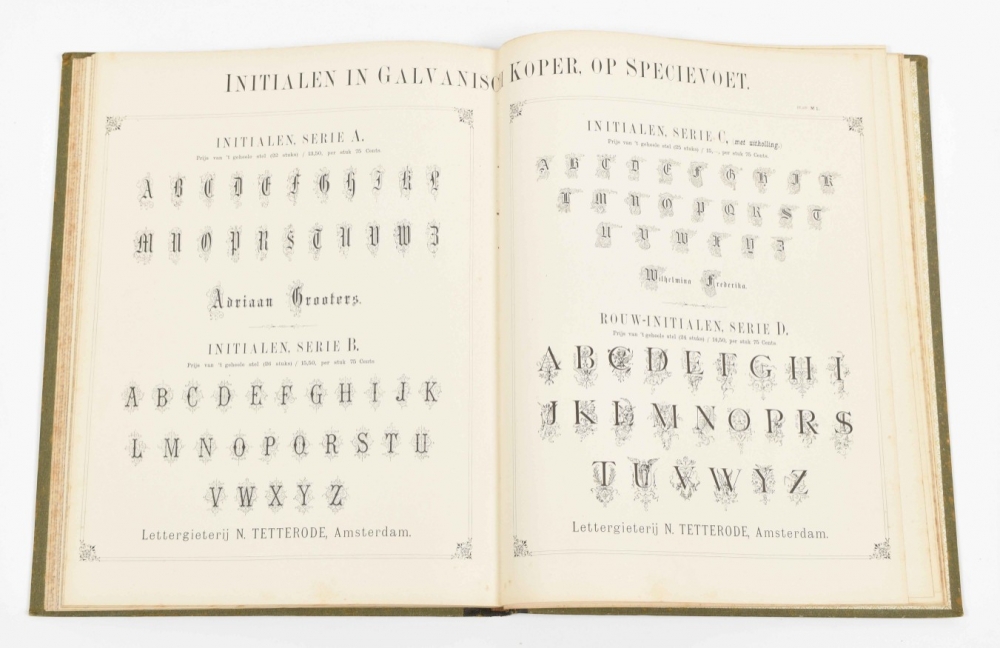 INITIALEN IN GALVANISCH KOPER, OP SPECIEVOET.
INITIALEN, SERIE A.
Prijs van 't geheele stel (22 stuks) f 13,50, per stuk 75 Cents
A B C D E F G H I J K L
M N O P R S T U V W Z
Adriaan Grooters.
INITIALEN, SERIE B.
Prijs van 't geheele stel
A B C D E F G H I J K
L M N O P Q R S T U
V W X Y Z
Lettergieterij N. TETTERODE, Amsterdam.
INITIALEN, SERIE C, (met uitholling.)
Prijs van 't geheele stel (25 stuks) f 15, per stuk 75 Cents
A B C D E F G H J K
L M N O P Q R S T
U V W X Y Z
Wilhelmina Frederika.
ROUW-INITIALEN, SERIE D.
Prijs van 't geheele stel (24 stuks) f 14,50, per stuk 75 Cents
A B C D E F G H I
J K L M N O P R S
T U V W Y Z
Lettergieterij N. TETTERODE, Amsterdam.